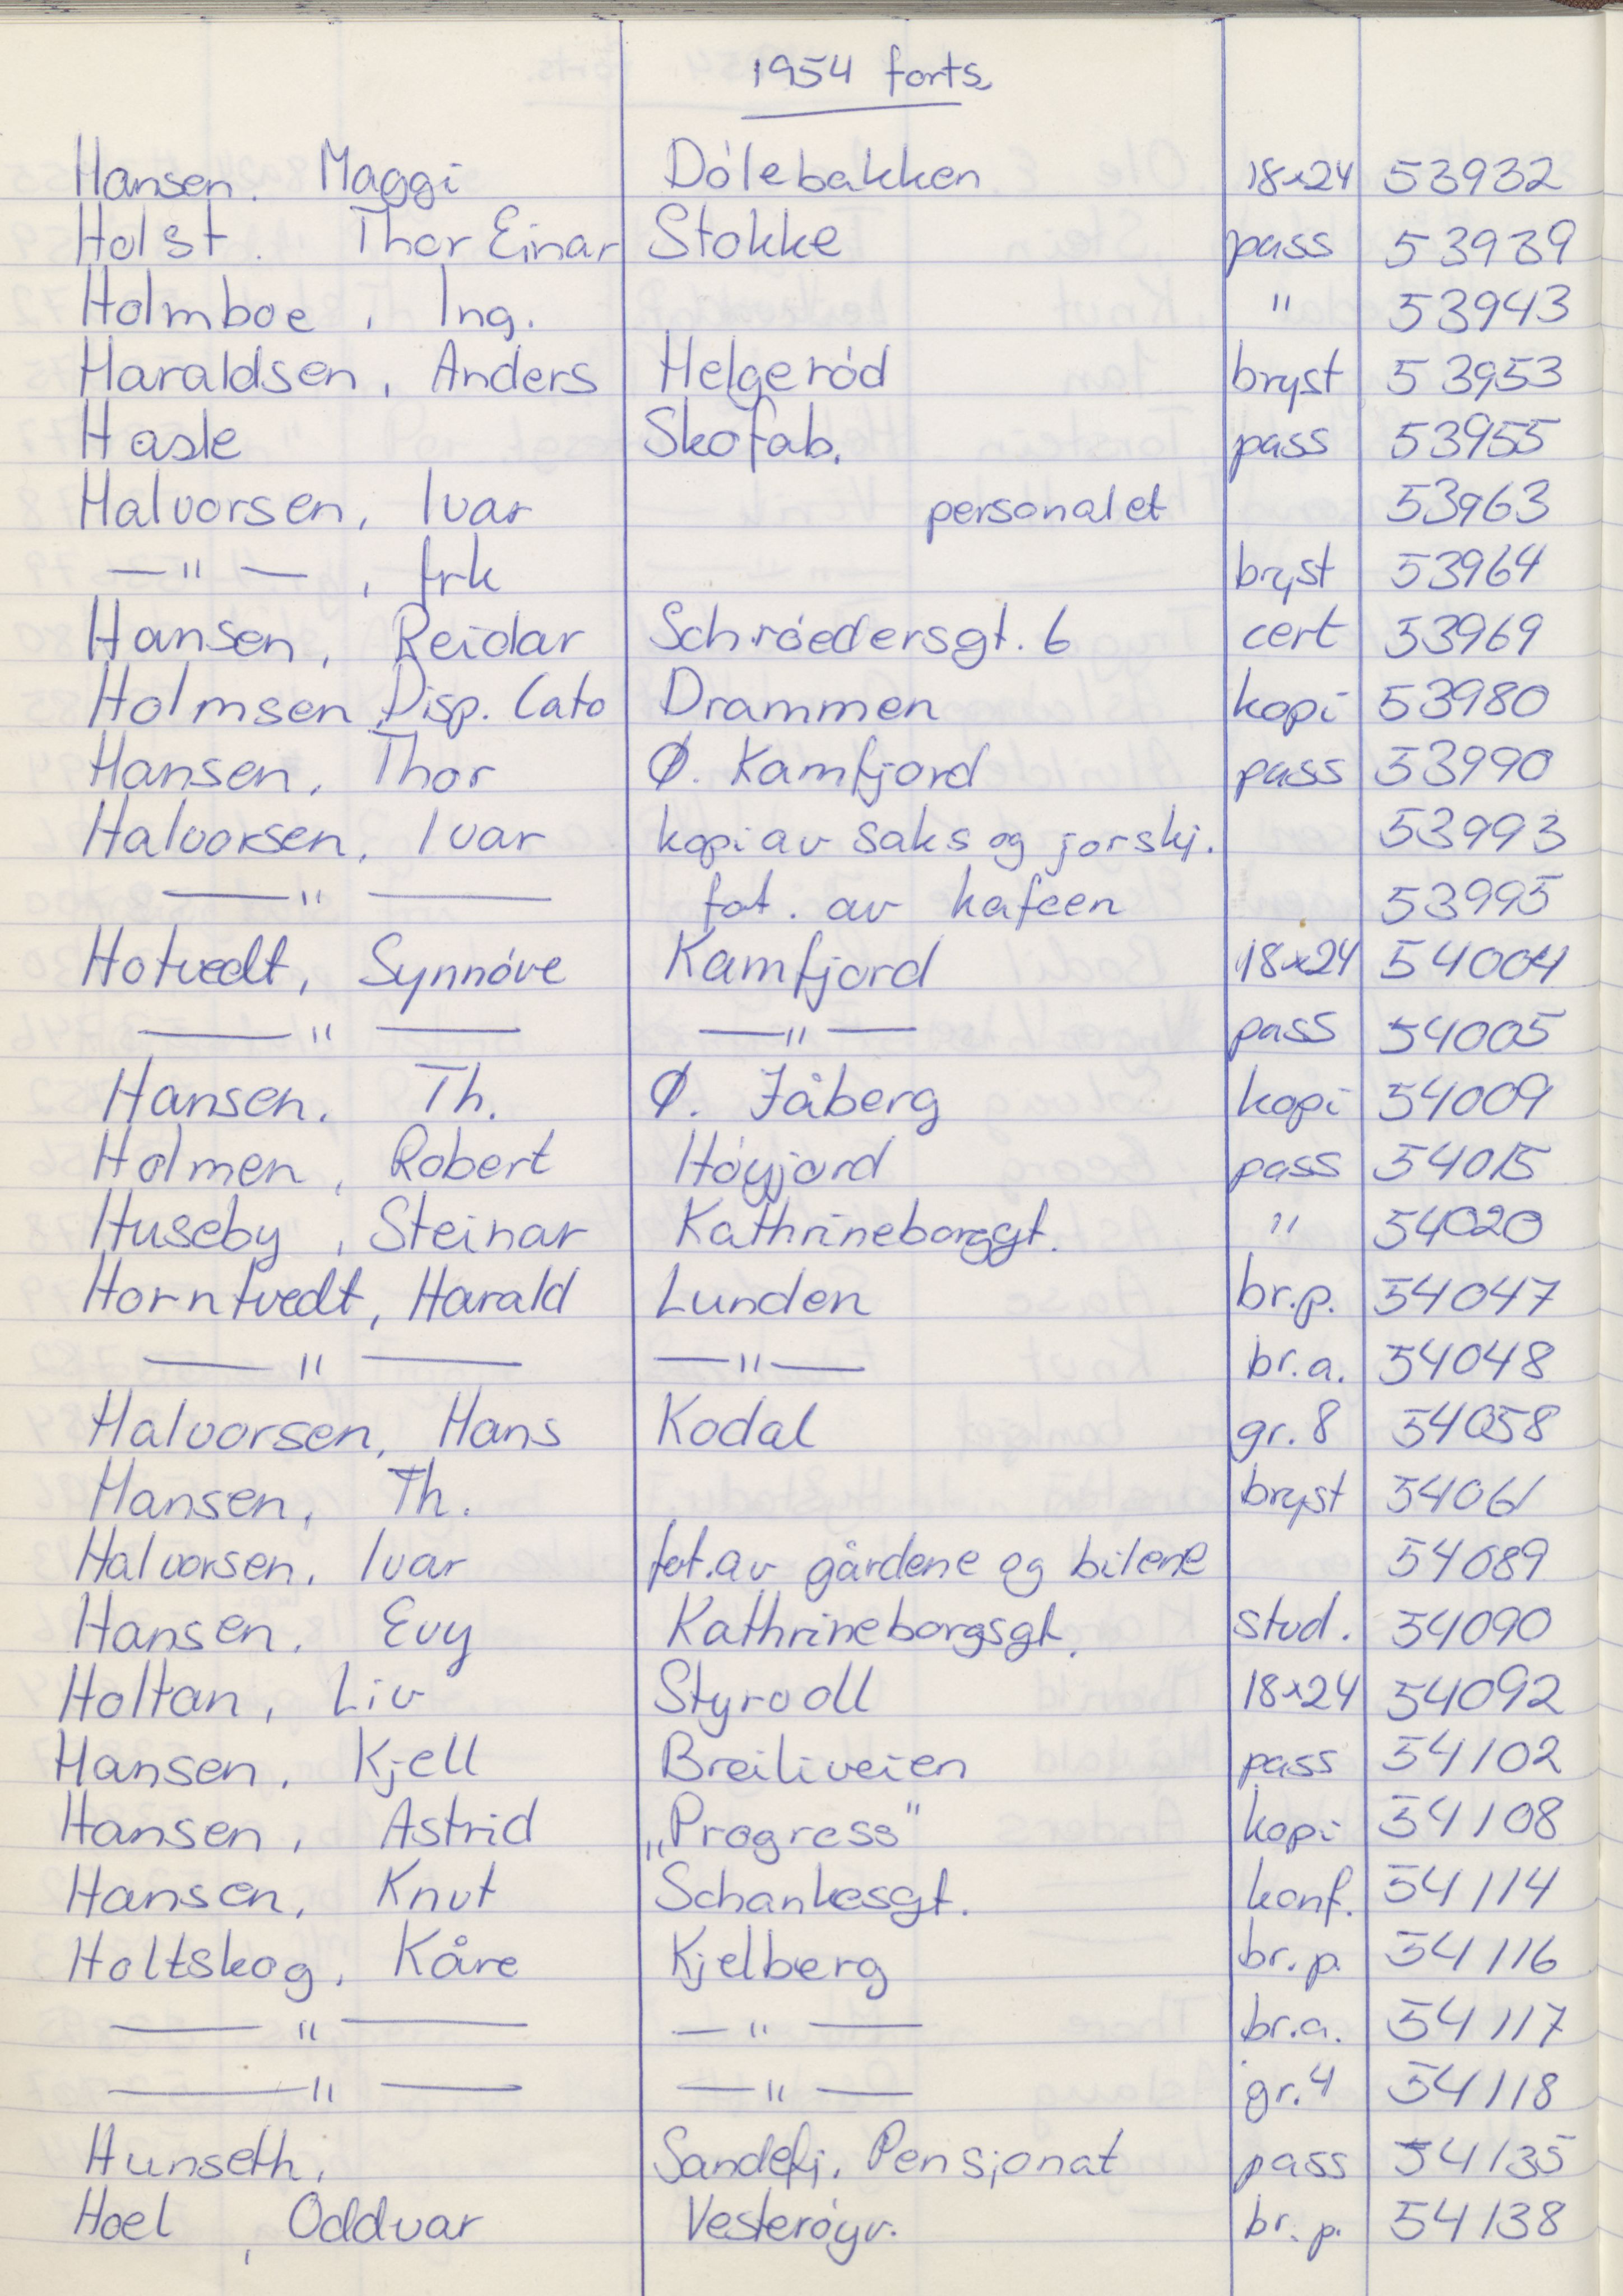 1954 forts.
Hansen. Maggi Dólebakken 18x24 53932
Holst. Thor Einar Stokke pass 53939
Holmboe, Ing. " 53943
Haraldsen, Anders Helgeród bryst 53953
Hasle Skofab. pass 53955
Halvorsen, Ivar personalet 53963
—"—, frk bryst 53964
Hansen, Reidar Schróedersgt. 6 cert 53969
Holmsen, Disp. Cato Drammen kopi 53980
Hansen, Thor Ø. Kamfjord pass 53990
Halvorsen, Ivar kopi av saks og jorskj. 53993
—"— fot. av kafeen 53995
Hotvedt, Synnóve Kamfjord 18x24 54004
—"— —"— pass 54005
Hansen. Th. Ø. Jåberg kopi 54009
Holmen, Robert Hóyjord pass 54015
Huseby, Steinar Kathrineborggt. " 54020
Horntvedt, Harald Lunden br.p. 54047
—"— —"— br.a. 54048
Halvorsen, Hans Kodal gr. 8 54058
Hansen, Th. bryst 54061
Halvorsen, Ivar fot. av gårdene og bilene 54089
Hansen. Evy Kathrineborgsgt. stud. 54090
Holtan, Liv Styrvoll 18x24 54092
Hansen, Kjell Breiliveien pass 54102
Hansen, Astrid „Progress" kopi 54108
Hansen, Knut Schankesgt. konf. 54114
Holtskog, Kåre Kjelberg br. p. 54116
—"— —"— br.a. 54117
—"— —"— gr. 4 54118
Hunseth, Sandefj. Pensjonat pass 54135
Hoel, Oddvar Vesteróyv. br. p. 54138